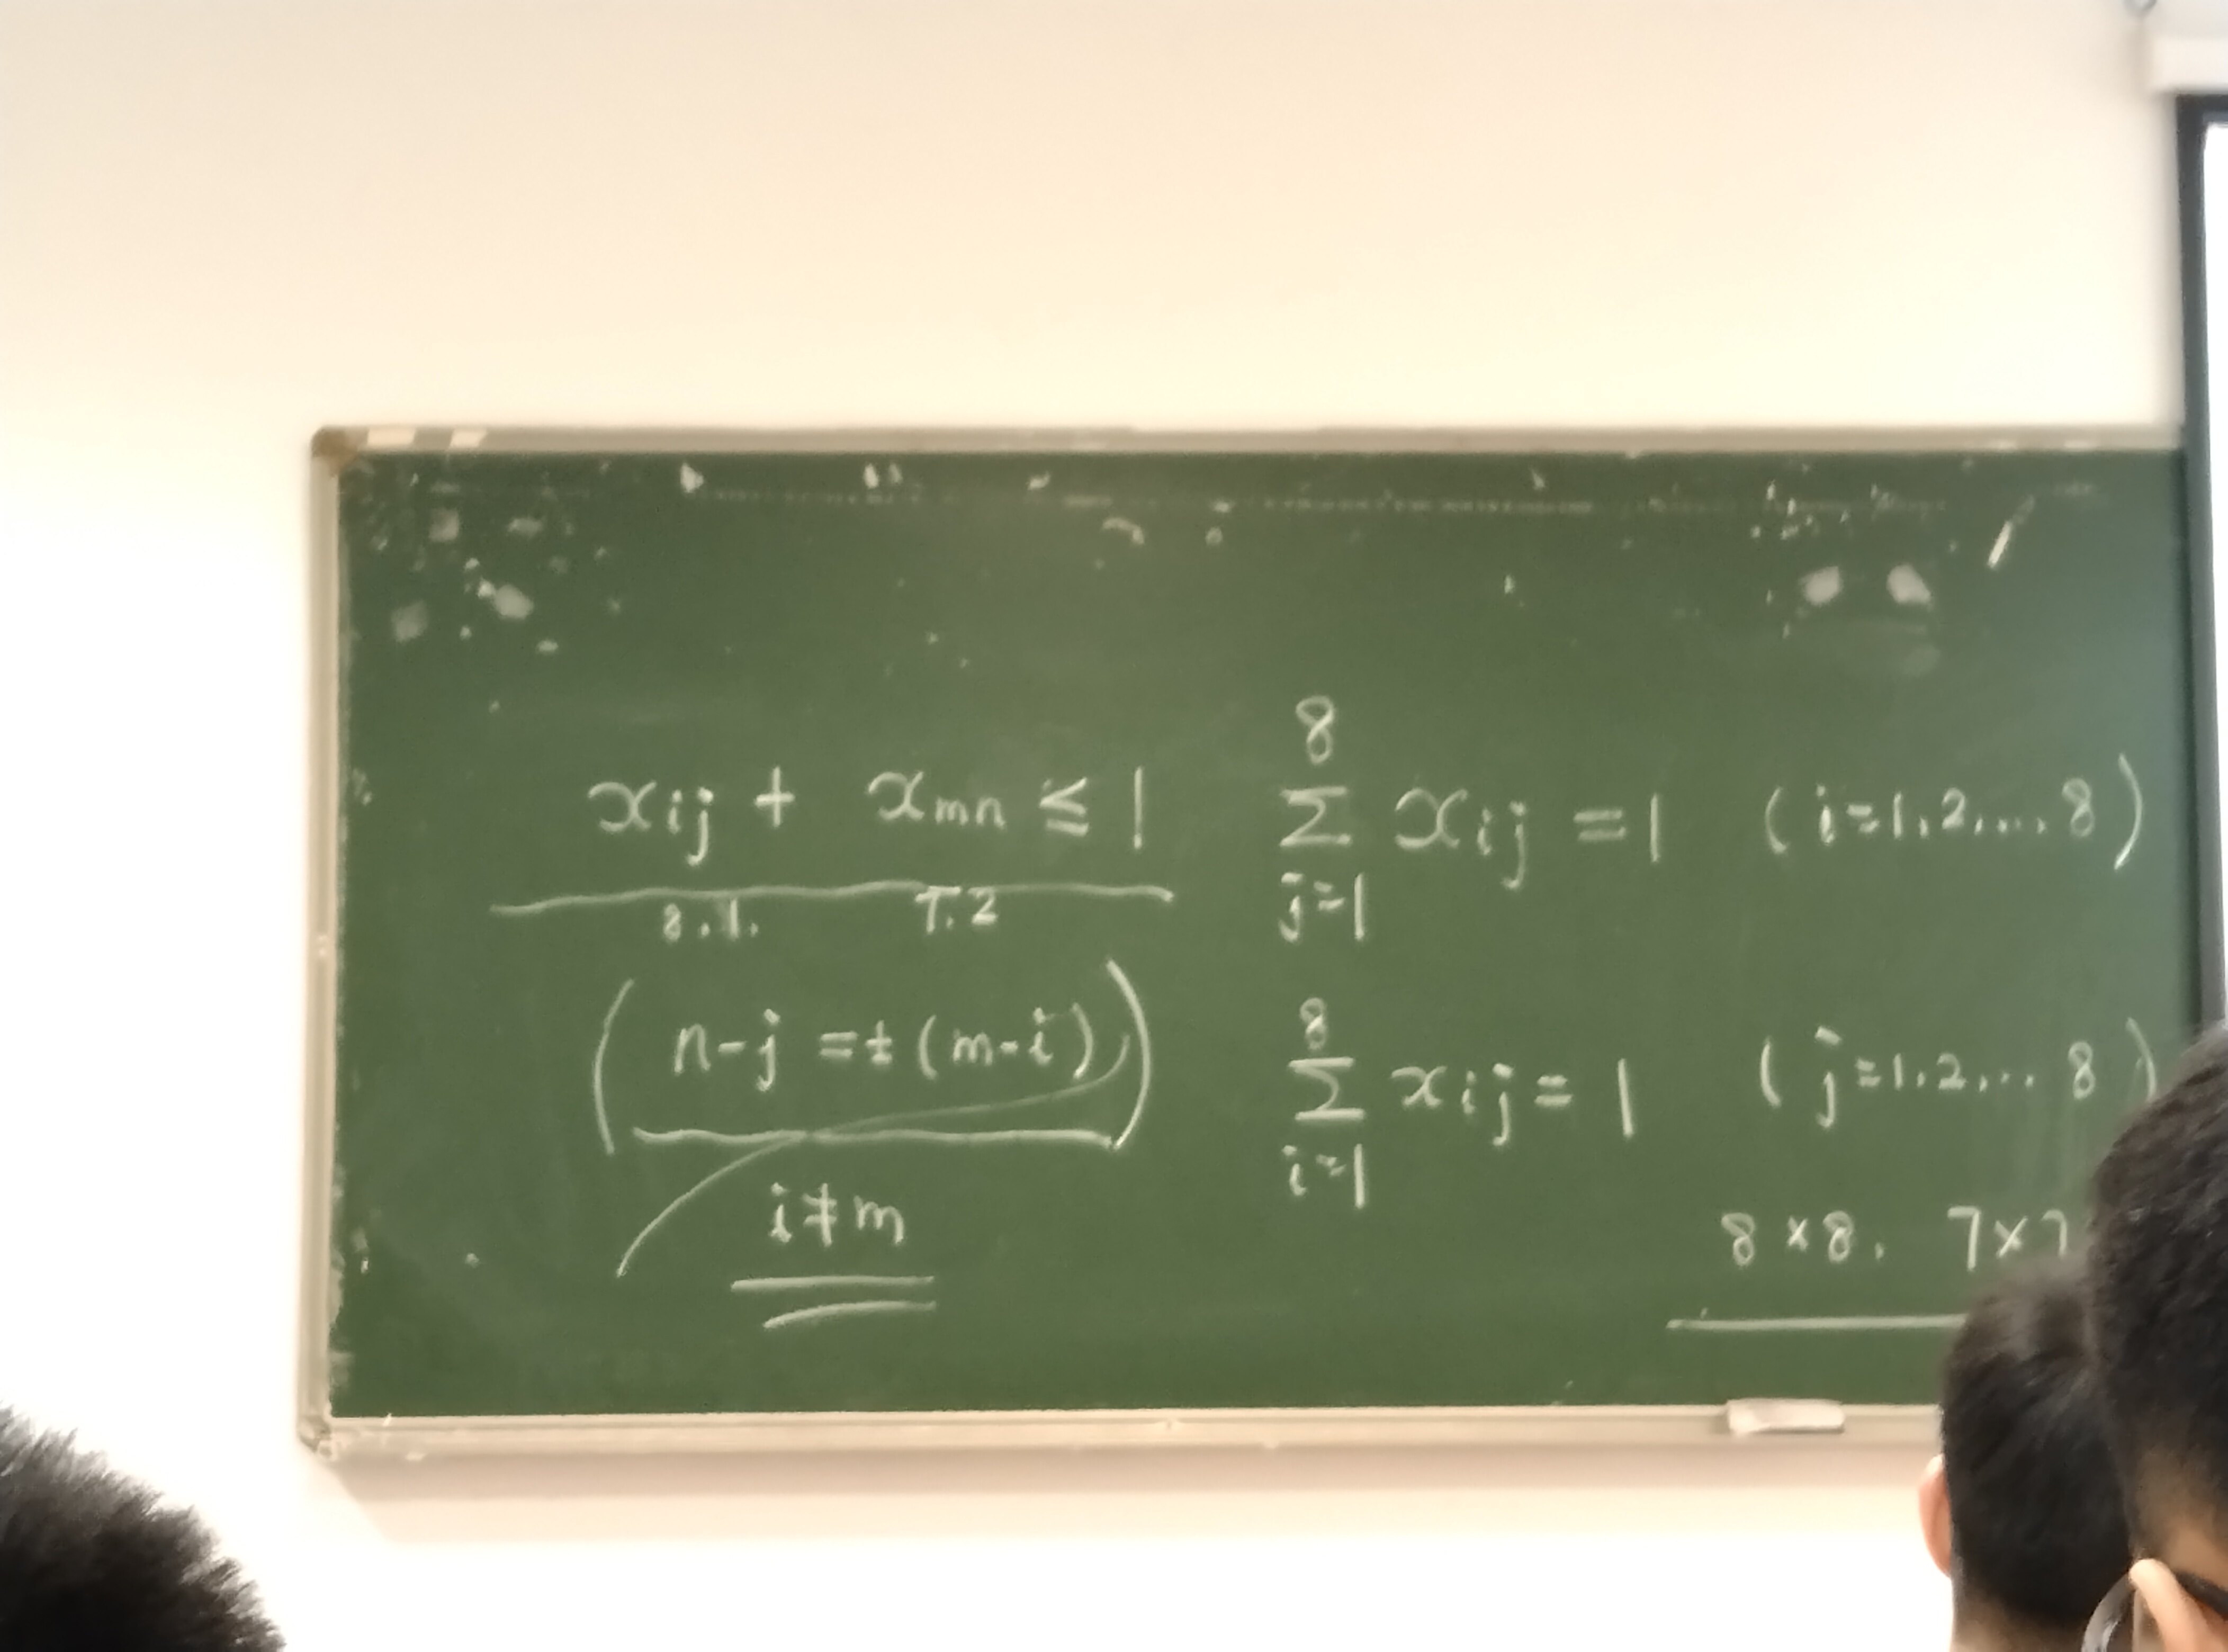 xij + xmn ≤ 1
8.1. 7.2
(n-j = ± (m-i))
i ≠ m
8
Σ xij = 1 (i=1,2,...,8)
j=1
8
Σ xij = 1 (j=1,2,...8)
i=1
8×8, 7×7